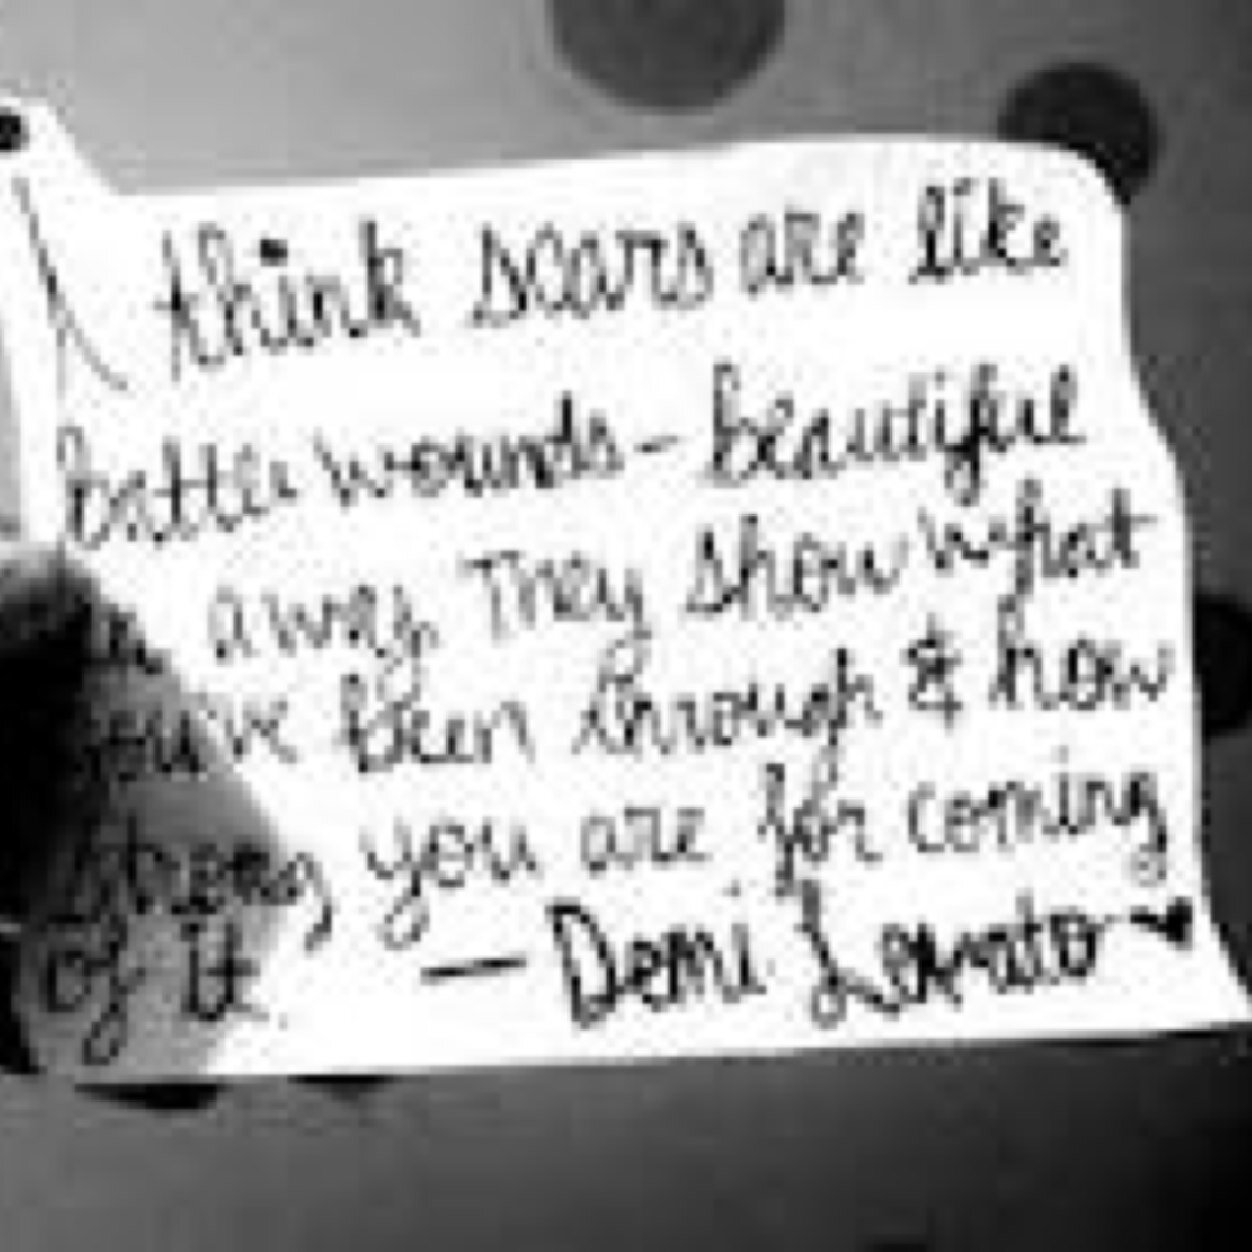 I think scars are like
battle wounds - beautiful
in a way. They show what
you've been through & how
strong you are for coming
of it. — Demi Lovato ♥